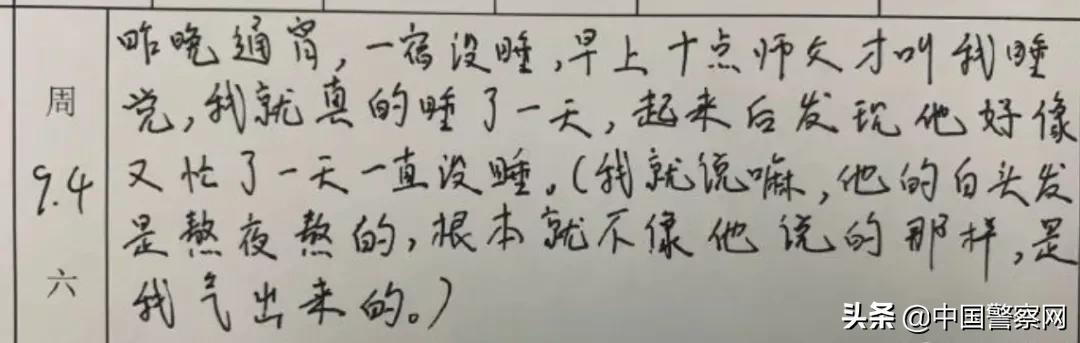 周
9.4
六
昨晚通宵，一宿没睡，早上十点师父才叫我睡
觉，我就真的睡了一天，起来后发现他好像
又忙了一天一直没睡。（我就说嘛，他的白头发
是熬夜熬的，根本就不像他说的那样，是
我气出来的。）
头条 @中国警察网